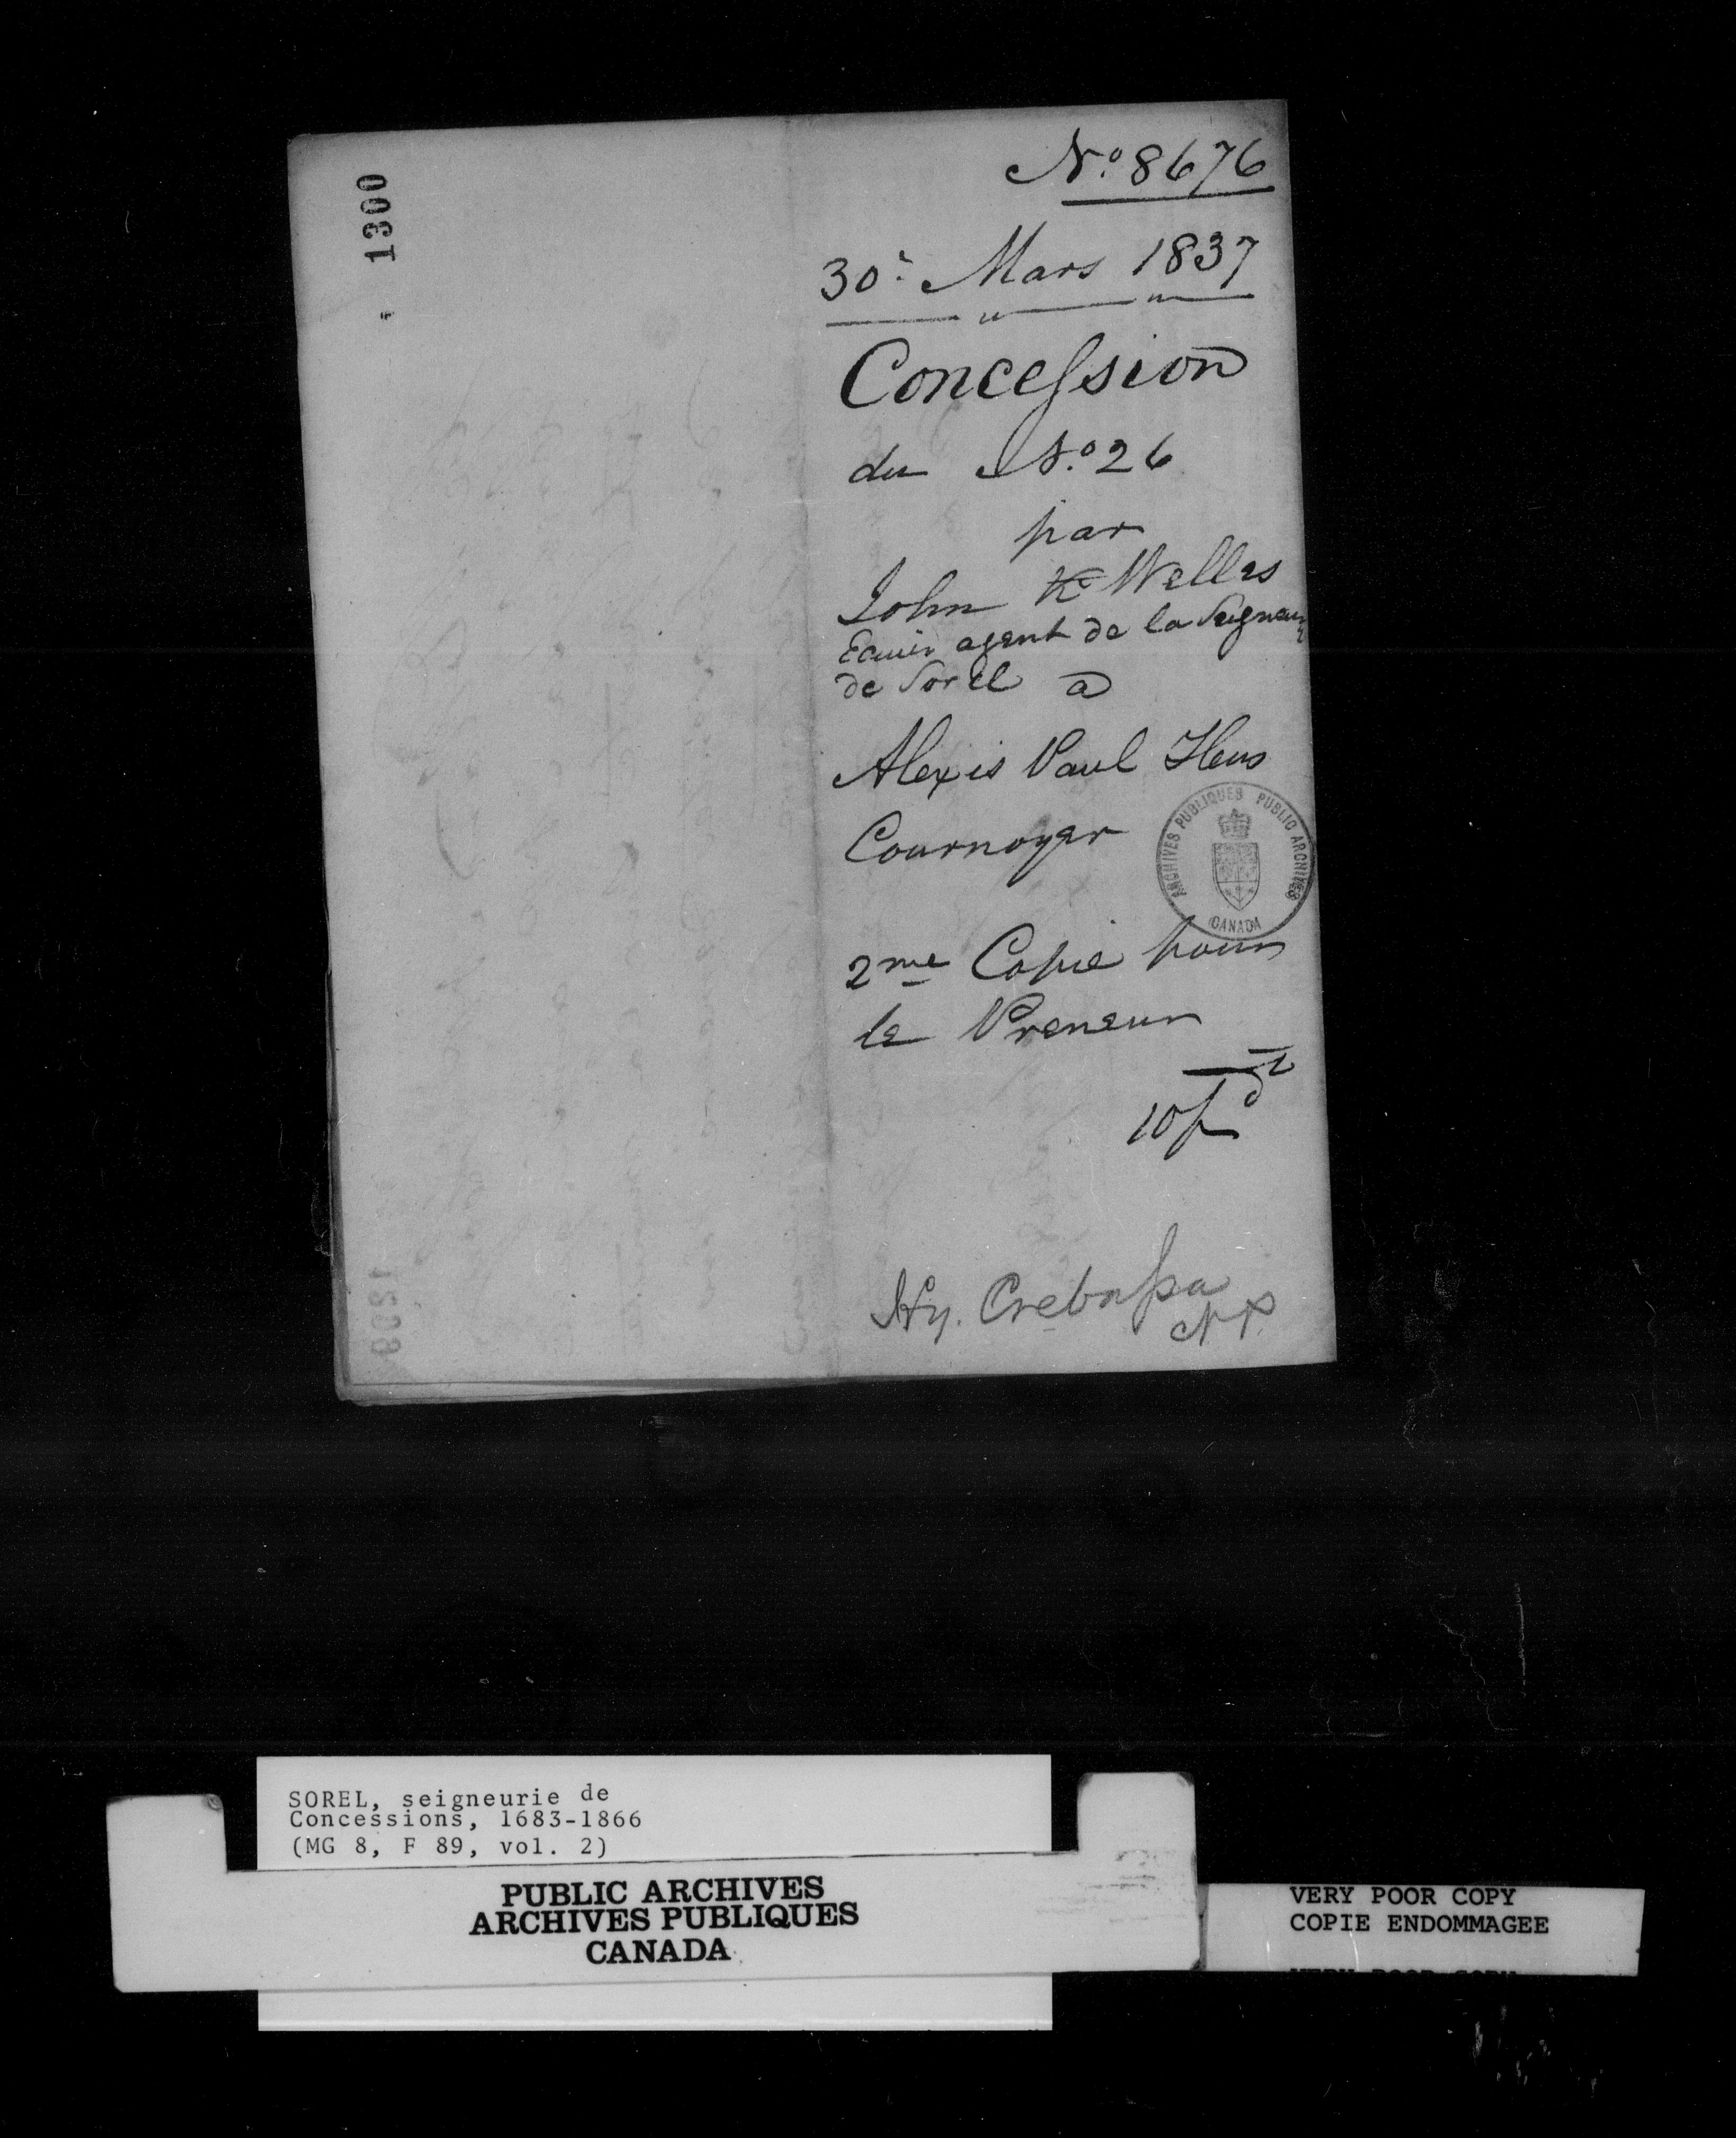 1300
No. 8676
30e Mars 1837
Concession
du No. 26
par
John Ke Welles
Ecuier agent de la Seigneurie
de Sorel a
Alexis Paul Heus
Cournoyer
ARCHIVES PUBLIQUES PUBLIC ARCHIVES
CANADA
2me Copie pour
le Preneur
Hy. Crebassa
N.P.
SOREL, seigneurie de
Concessions, 1683-1866
(MG 8, F 89, vol. 2)
PUBLIC ARCHIVES
ARCHIVES PUBLIQUES
CANADA
VERY POOR COPY
COPIE ENDOMMAGEE
VERY POOR COPY